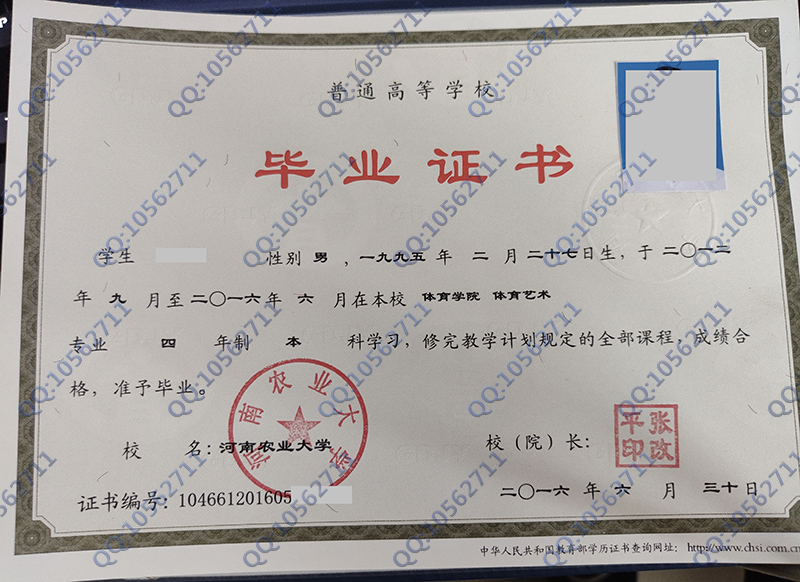 普通高等学校
毕业证书
学生 性别 男 ,一九九五 年 二 月 二十七日生, 于 二〇一二
年 九 月至 二〇一六年 六 月在本校 体育学院 体育艺术
专业 四 年制 本 科学习, 修完教学计划规定的全部课程, 成绩合
格, 准予毕业。
河南农业大学
校 名: 河南农业大学
校(院)长:
张改平印
证书编号: 104661201605
二〇一六 年 六 月 三十日
中华人民共和国教育部学历证书查询网址: http://www.chsi.com.cn
QQ:10562711